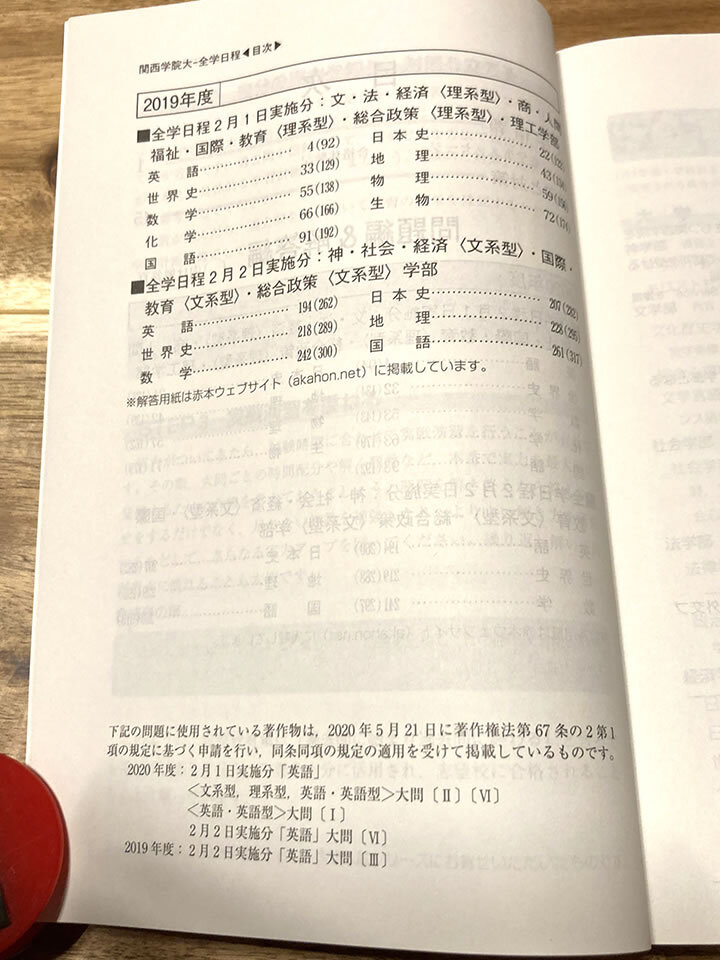 関西学院大-全学日程◀目次▶
2019年度
■全学日程2月1日実施分：文・法・経済〈理系型〉・商・人間
福祉・国際・教育〈理系型〉・総合政策〈理系型〉・理工学部
英 語 4(92) 日本史
世界史 33(129) 地 理
数 学 55(138) 物 理
化 学 66(166) 生 物
国 語 91(192)
■全学日程2月2日実施分：神・社会・経済〈文系型〉・国際・
教育〈文系型〉・総合政策〈文系型〉学部
英 語 194(262) 日本史 207(282)
世界史 218(289) 地 理 228(295)
数 学 242(300) 国 語 251(317)
※解答用紙は赤本ウェブサイト（akahon.net）に掲載しています。
下記の問題に使用されている著作物は，2020年5月21日に著作権法第67条の2第1
項の規定に基づく申請を行い，同条同項の規定の適用を受けて掲載しているものです。
2020年度：2月1日実施分「英語」
＜文系型，理系型，英語・英語型＞大問〔Ⅱ〕〔Ⅵ〕
＜英語・英語型＞大問〔Ⅰ〕
2月2日実施分「英語」大問〔Ⅵ〕
2019年度：2月2日実施分「英語」大問〔Ⅲ〕